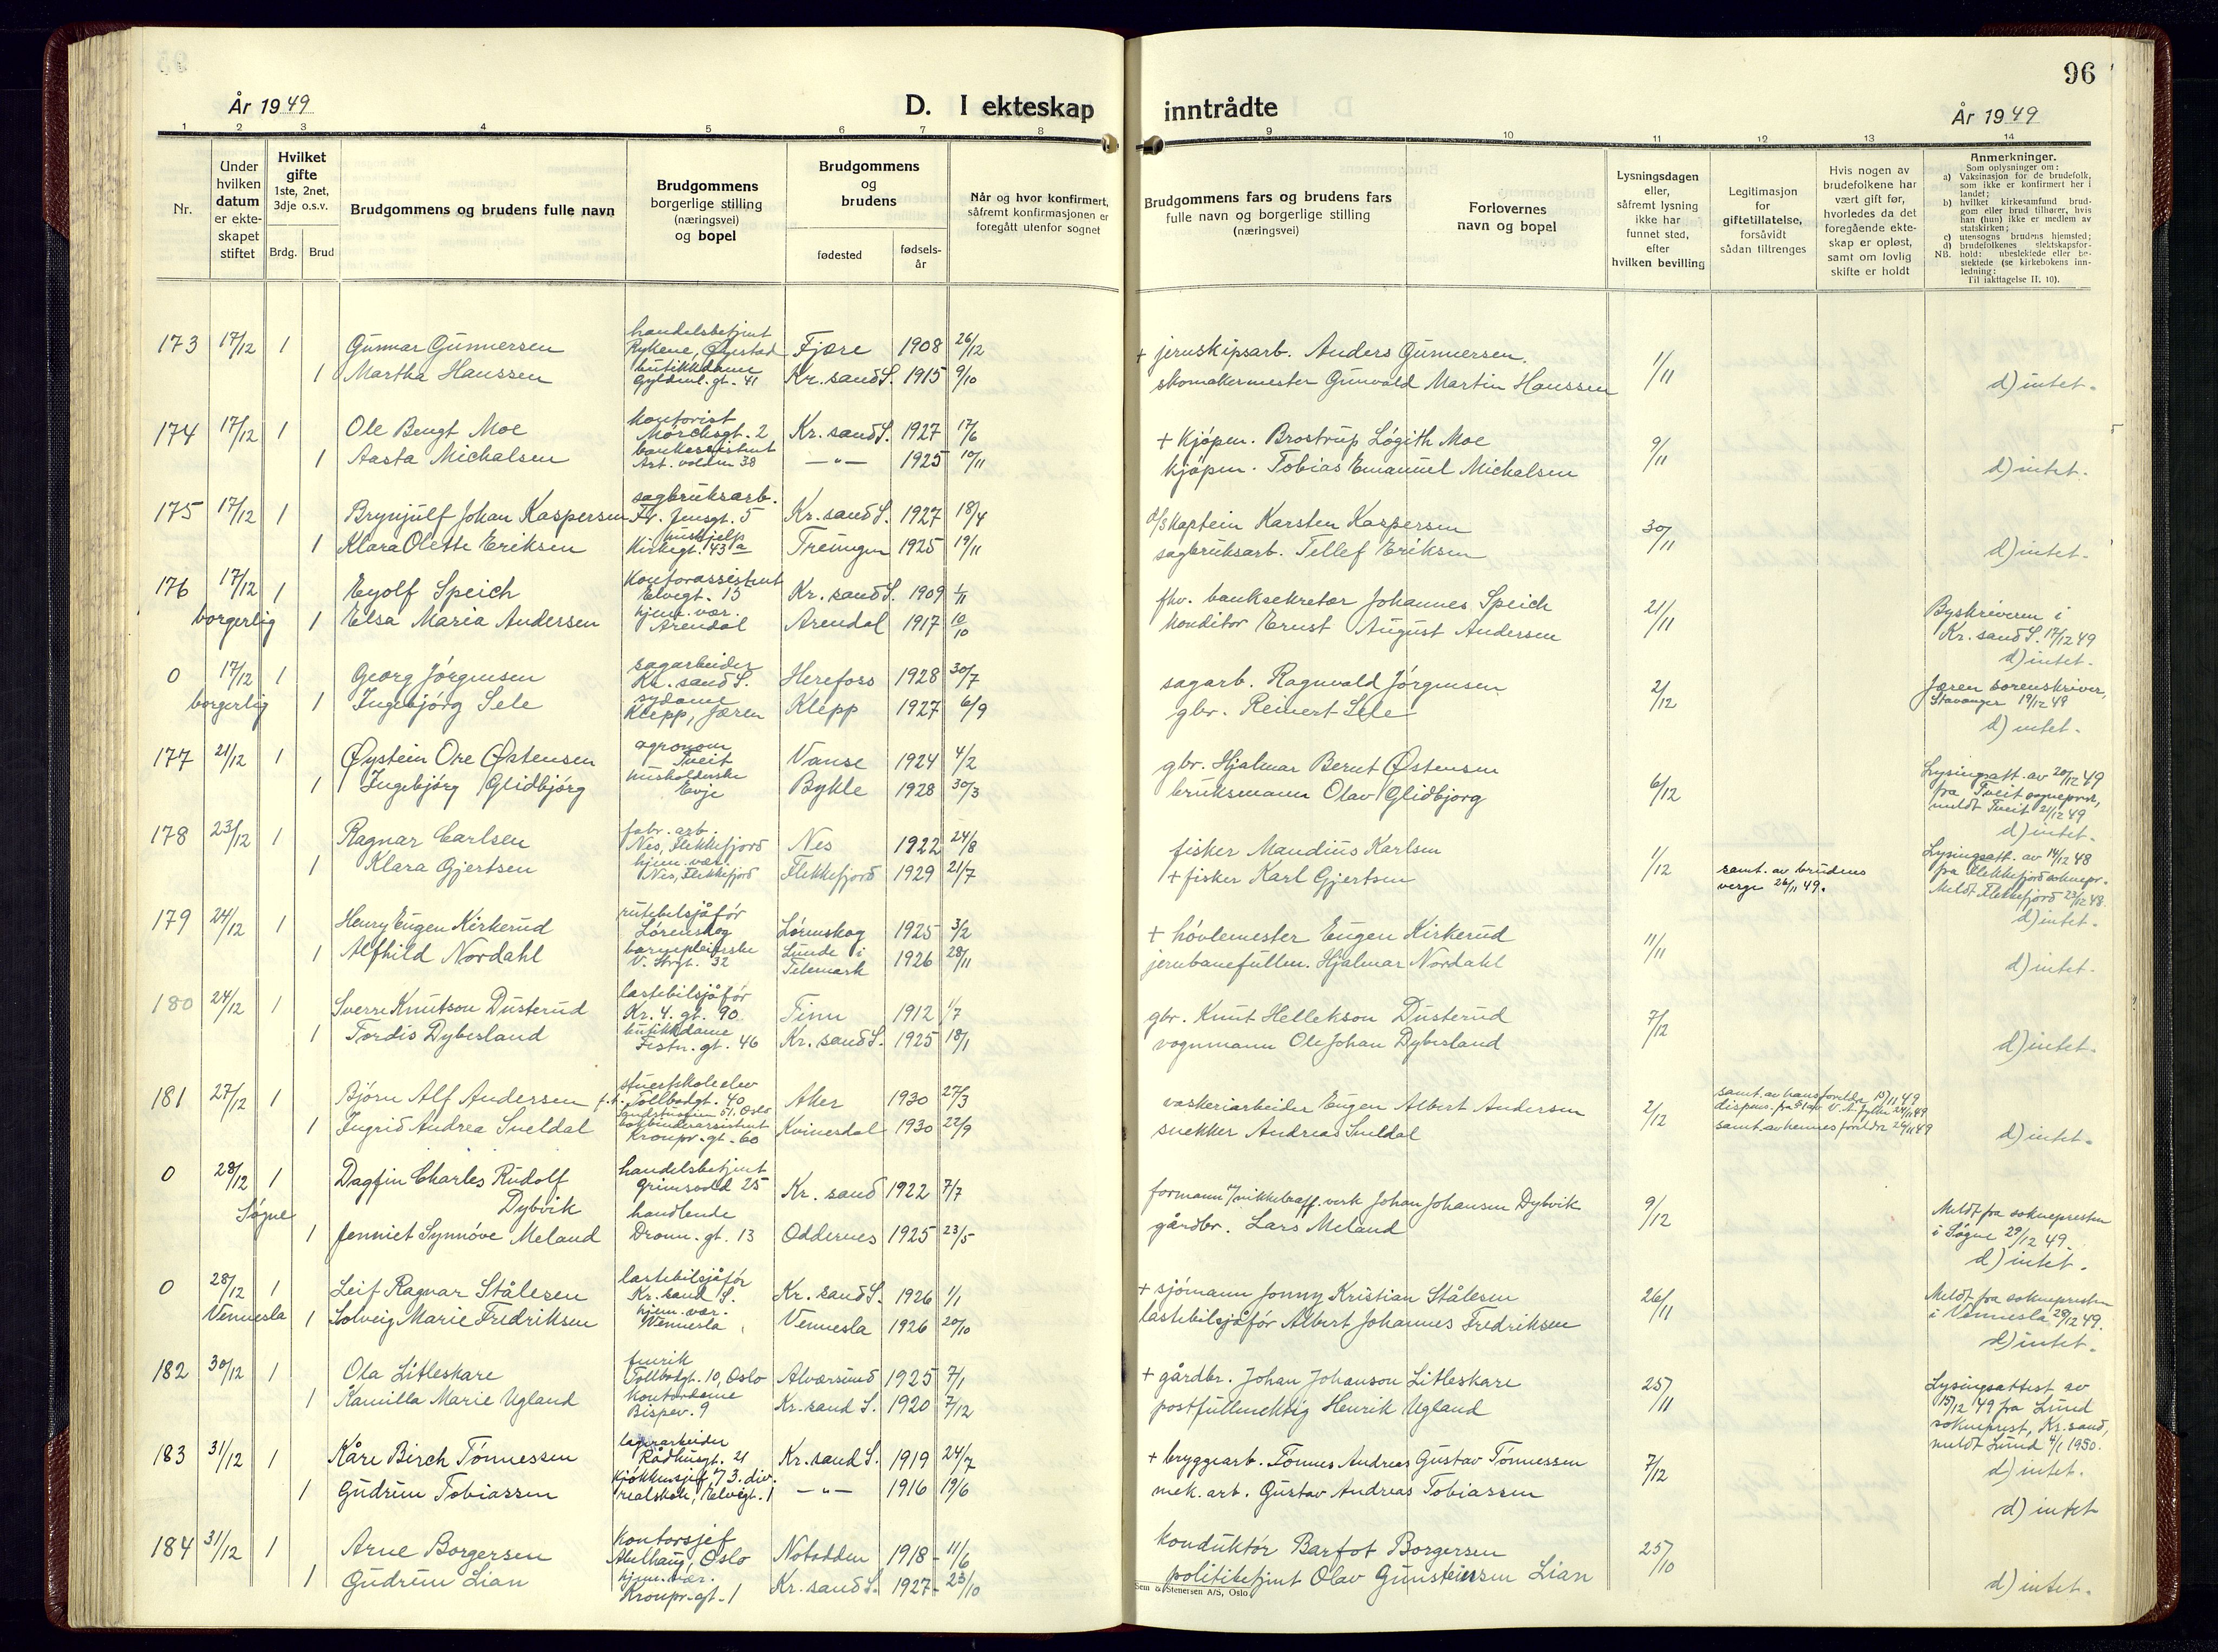 96
År 1949
D. I ekteskap inntrådte
År 1949
1 2 3 4 5 6 7 8 9 10 11 12 13 14
Nr.
Under hvilken datum er ekteskapet stiftet
Hvilket gifte 1ste, 2net, 3dje o.s.v.
Brdg. Brud
Brudgommens og brudens fulle navn
Brudgommens borgerlige stilling (næringsvei) og bopel
Brudgommens og brudens
fødested
fødselsår
Når og hvor konfirmert, såfremt konfirmasjonen er foregått utenfor sognet
Brudgommens fars og brudens fars fulle navn og borgerlige stilling (næringsvei)
Forlovernes navn og bopel
Lysningsdagen eller, såfremt lysning ikke har funnet sted, efter hvilken bevilling
Legitimasjon for giftetillatelse, forsåvidt sådan tiltrenges
Hvis nogen av brudefolkene har vært gift før, hvorledes da det foregående ekteskap er opløst, samt om lovlig skifte er holdt
Anmerkninger.
Som oplysninger om:
a) Vaksinasjon for de brudefolk, som ikke er konfirmert her i landet;
b) hvilket kirkesamfund brudgom eller brud tilhører, hvis han (hun) ikke er medlem av statskirken;
c) utensogns brudens hjemsted;
d) brudefolkenes slektskapsforhold: ubeslektede eller beslektede (se kirkebokens innledning:
NB.
Til iakttagelse II. 10).
173 17/12 1 Gunnar Gunnersen handelsbetjent Rykene, Øyestad Fjære 1908 26/12 + jernskipsarb. Anders Gunnersen. 1/11
1 Martha Hanssen butikkdame Gyldenl. gt. 41 Kr.sand S. 1915 9/10 skomakermester Gunvald Martin Hanssen d) intet.
174 17/12 1 Ole Bengt Moe kontorist Mørchsgt. 2 Kr.sand S. 1927 17/6 + kjøpm. Brostrup Løgith Moe 9/11
1 Aasta Michalsen bankassistent Art. volden 38 —"— 1925 10/11 kjøpm. Tobias Emanuel Michalsen d) intet.
175 17/12 1 Brynjulf Johan Kaspersen sagbruksarb. Fr. Jensgt. 5 Kr.sand S. 1927 18/4 d/s kaptein Karsten Kaspersen 30/11
1 Klara Olette Eriksen hushjelp Kirkegt. 43a Treungen 1925 19/11 sagbruksarb. Tellef Eriksen d) intet.
176 17/12 1 Eyolf Speich kontorassistent Elvegt. 15 Kr.sand S. 1909 1/11 fhv. banksekretær Johannes Speich 21/11 Byskriveren i
borgerlig 1 Elsa Maria Andersen hjem. vær. Arendal Arendal 1917 10/10 konditor Ernst August Andersen Kr.sand S. 17/12 49
d) intet.
0 17/12 1 Georg Jørgensen sagarbeider Kr.sand S. Herefoss 1928 30/7 sagarb. Ragnvald Jørgensen 2/12 Jæren sorenskriver,
borgerlig 1 Ingebjørg Sele sydame Klepp, Jæren Klepp 1927 6/9 gbr. Reinert Sele Stavanger 19/12 49
d) intet.
177 21/12 1 Øystein Ore Østensen agronom Tveit Vanse 1924 4/2 gbr. Hjalmar Bernt Østensen 6/12 Lysingsatt. av 20/12 49
1 Ingebjørg Glidbjørg husholderske Evje Bykle 1928 30/3 bruksmann Olav Glidbjørg fra Tveit sogneprest,
meldt Tveit 21/12 49
d) intet.
178 23/12 1 Ragnar Carlsen fabr. arb. Nes, Flekkefjord Nes 1922 24/8 fisker Mandius Karlsen 1/12 Lysingsatt. av 14/12 48
1 Klara Gjertsen hjem. vær. Nes, Flekkefjord Flekkefjord 1929 21/7 + fisker Karl Gjertsen samt. av brudens verge 26/11 49. fra Flekkefjord soknepr.
Meldt Flekkefjord 23/12 48.
d) intet.
179 24/12 1 Henry Eugen Kirkerud rutebilsjåfør Lørenskog Lørenskog 1925 3/2 + høvlemester Eugen Kirkerud 11/11
1 Alfhild Nordahl barnepleierske V. Strgt. 32 Lunde i Telemark 1926 28/11 jernbanefullm. Hjalmar Nordahl d) intet.
180 24/12 1 Sverre Knutson Dusterud lastebilsjåfør Kr. 4. gt. 90 Tinn 1912 1/7 gbr. Knut Hellekson Dusterud 7/12
1 Tordis Dybesland butikkdame Festn. gt. 46 Kr.sand S. 1925 18/1 vognmann Ole Johan Dybesland d) intet.
181 27/12 1 Bjørn Alf Andersen stuertskoleelev f.t. Tollbodgt. 40 Oslo Aker 1930 27/3 vaskeriarbeider Eugen Albert Andersen 2/12 samt. av hans foreldre 15/11 49
1 Ingrid Andrea Sneldal bokbinderassistent Kronpr. gt. 60 Kvinesdal 1930 22/9 snekker Andreas Sneldal samt. av hennes foreldre 26/11 49 d) intet.
0 28/12 1 Dagfin Charles Rudolf Dybvik handelsbetjent Grimsvold 25 Kr.sand 1922 7/7 formann v/ nikkelraff.verk Johan Johansen Dybvik 9/12 Meldt fra soknepresten
Søgne 1 Jenniet Synnøve Meland handlende Dronn. gt. 13 Oddernes 1925 23/5 gårdbr. Lars Meland i Søgne 29/12 49.
d) intet.
0 28/12 1 Leif Ragnar Stålesen lastebilsjåfør Kr.sand S. Kr.sand S. 1926 1/1 + sjømann Jonny Kristian Stålesen 26/11 Meldt fra soknepresten
Vennesla 1 Solveig Marie Fredriksen hjem. vær. Vennesla Vennesla 1926 20/10 lastebilsjåfør Albert Johannes Fredriksen i Vennesla 28/12 49.
d) intet.
182 30/12 1 Ola Litleskare Tollbodgt. 10, Oslo Alversund 1925 7/1 + gårdbr. Johan Johanson Litleskare 25/11 Lysingsattest av
1 Kamilla Marie Ugland kontordame Bispev. 9 Kr.sand S. 1920 7/12 postfullmektig Henrik Ugland 15/12 49 fra Lund
sokneprest, Kr.sand,
meldt Lund 4/1 1950.
d) intet.
183 31/12 1 Kåre Birch Tønnessen lagerarbeider Rådhusgt. 21 Kr.sand S. 1919 24/7 + bryggearb. Tønnes Andreas Gustav Tønnessen 7/12
1 Gudrun Tobiassen kjøkkensjef v/ 3. div. realskole, Elvegt. 1 —"— 1916 19/6 mek. arb. Gustav Andreas Tobiassen d) intet
184 31/12 1 Arne Borgersen kontorsjef Abelhaug, Oslo Notodden 1918 11/6 konduktør Barfot Borgersen 25/10
1 Gudrun Lian hjem. vær. Kronpr. gt. 1 Kr.sand S. 1927 23/10 politibetjent Olav Gunsteinsen Lian d) intet.
Sem & Stenersen A/S, Oslo